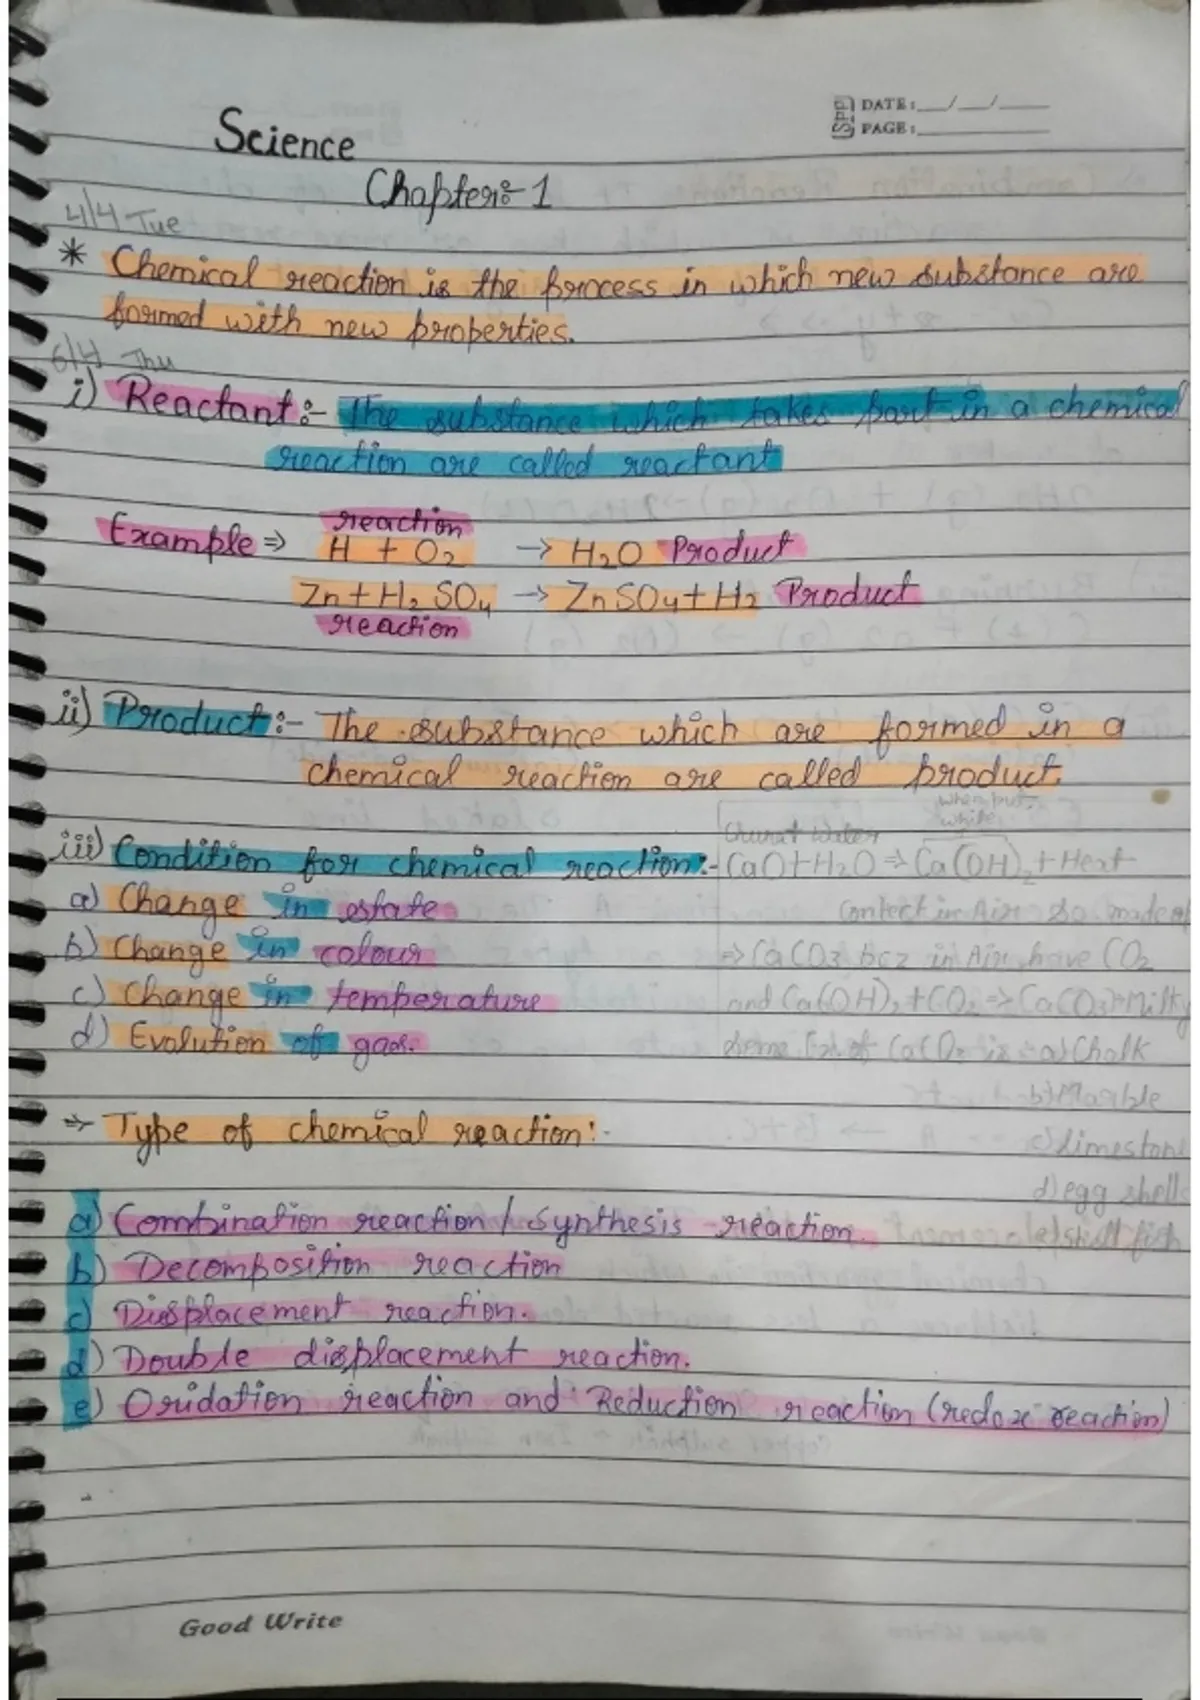 DATE: __/__/____
PAGE: ________
Science
Chapter:- 1
4/4 Tue
* Chemical reaction is the process in which new substance are
formed with new properties.
6/4 Thu
i) Reactant:- The substance which takes part in a chemical
reaction are called reactant
reaction
Example ⇒ H + O2 → H2O Product
Zn + H2 SO4 → ZnSO4 + H2 Product
reaction
ii) Product:- The substance which are formed in a
chemical reaction are called product.
iii) Condition for chemical reaction:-
a) Change in state
b) Change in colour
c) Change in temperature
d) Evolution of gas.
when put
white
Water
CaO+H2O ⇒ Ca(OH)2 + Heat
Contect in Air so made of
⇒ CaCO3 bcz in Air have CO2
and Ca(OH)2 + CO2 ⇒ CaCO3 Milky
Some Ex of CaCO3 is :- a) Chalk
b) Marable
c) limestone
d) egg shells
e) shell fish
⇒ Type of chemical reaction:-
a) Combination reaction / Synthesis reaction.
b) Decomposition reaction
c) Displacement reaction.
d) Double displacement reaction.
e) Oxidation reaction and Reduction reaction (redox reaction)
Good Write